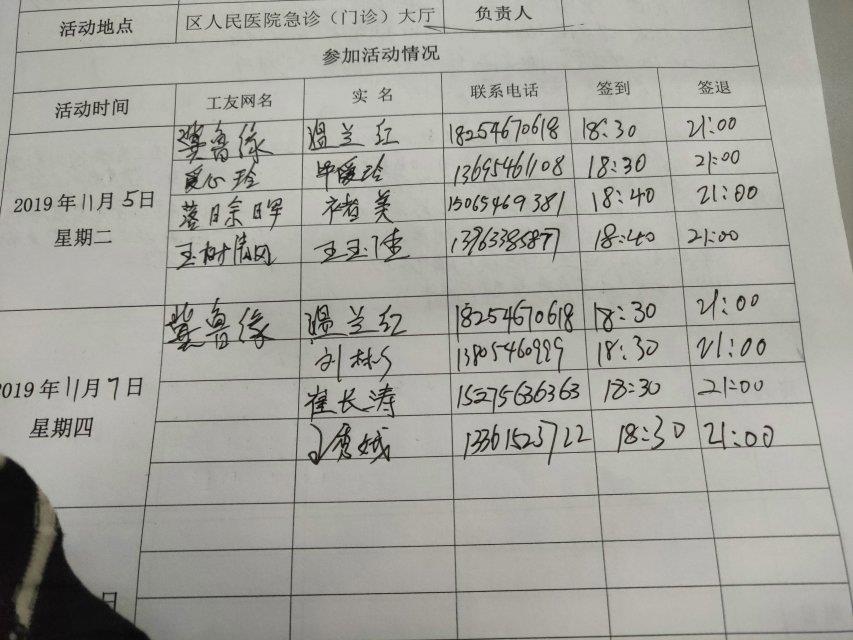 活动地点 区人民医院急诊（门诊）大厅 负责人
参加活动情况
活动时间 工友网名 实名 联系电话 签到 签退
冀鲁缘 温兰红 18254670618 18:30 21:00
爱心玲 毕爱玲 13695461108 18:30 21:00
2019年11月5日
落日余晖 褚美 15065469381 18:40 21:00
星期二
玉树清风 王玉佳 13963385877 18:40 21:00
冀鲁缘 温兰红 18254670618 18:30 21:00
刘彬 13805460999 18:30 21:00
019年11月7日
崔长涛 15275636363 18:30 21:00
星期四
王秀娥 13361523722 18:30 21:00
日